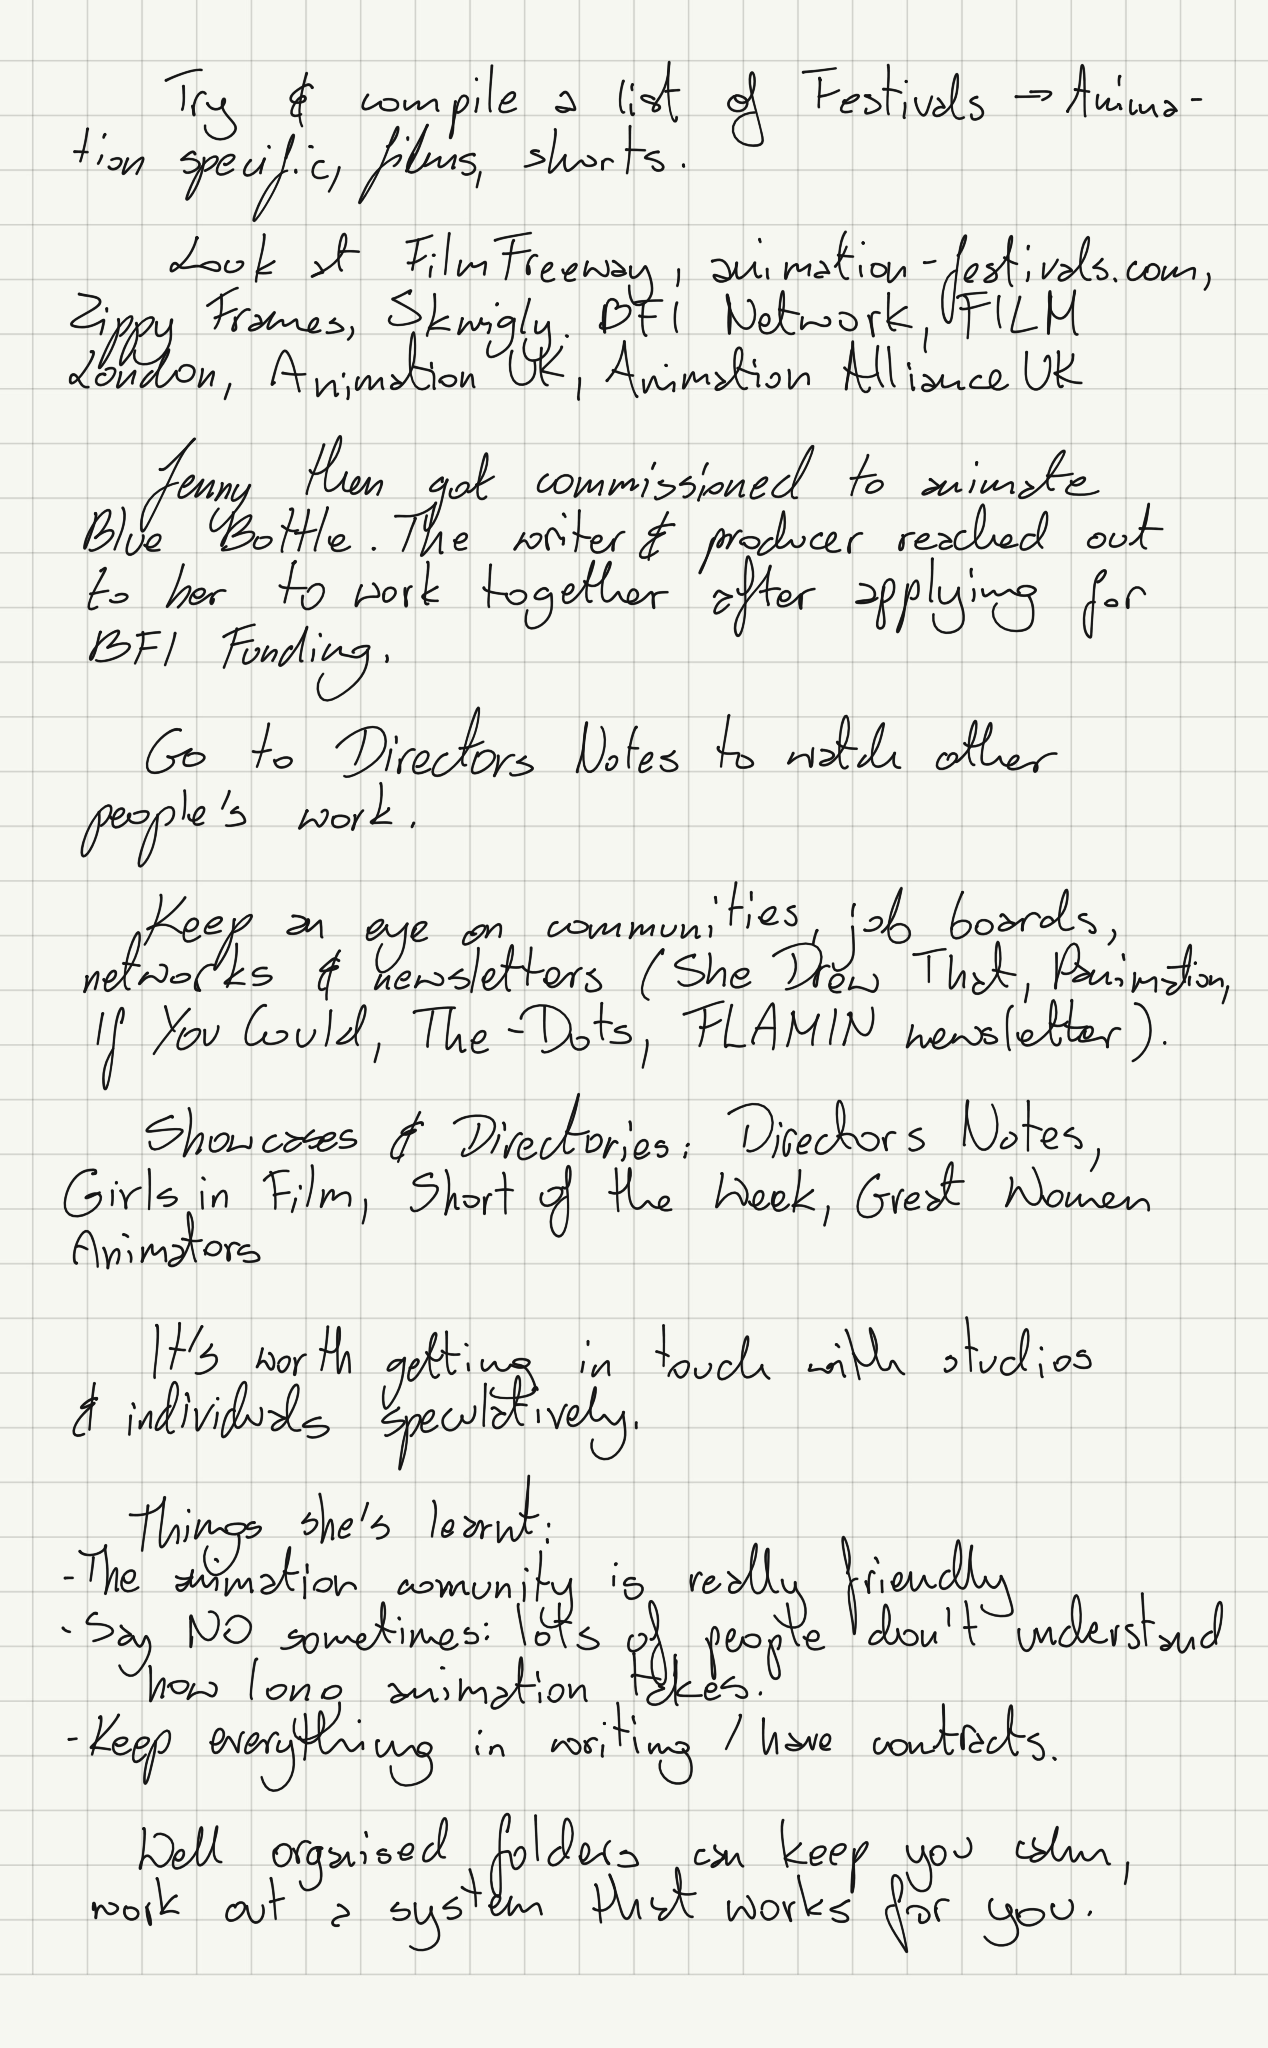 Try & compile a list of Festivals → Anima-
tion specific, films, shorts.
Look at FilmFreeway, animation-festivals.com,
Zippy Frames, Skwigly. BFI Network, FILM
London, Animation UK, Animation Alliance UK
Jenny then got commissioned to animate
Blue Bottle. The writer & producer reached out
to her to work together after applying for
BFI Funding.
Go to Directors Notes to watch other
people's work.
Keep an eye on communities, job boards,
networks & newsletters (She Drew That, Panimation,
If You Could, The-Dots, FLAMIN newsletter).
Showcases & Directories: Directors Notes,
Girls in Film, Short of the Week, Great Women
Animators
It's worth getting in touch with studios
& individuals speculatively.
Things she's learnt:
- The animation comunity is really friendly
- Say NO sometimes: lots of people don't understand
how long animation takes.
- Keep everything in writing / have contracts.
Well organised folders can keep you calm,
work out a system that works for you.